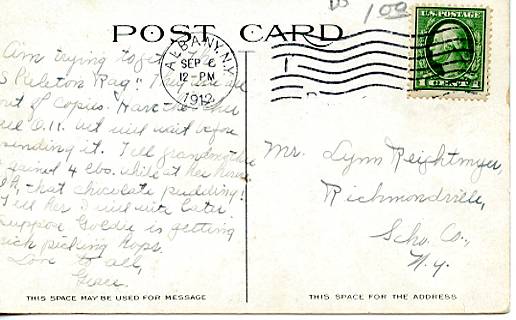 1.00
POST CARD
ALBANY, N.Y.
SEP 6
12-PM
1912
1
U.S. POSTAGE
Am trying to get
Skeleton Rag." They are all
out of copies. Have the
will wait before
sending it. Tell grandmother
I gained 4 lbs. while at her house
Oh, that chocolate pudding!
Tell her I will write later.
Suppose Goldie is getting
rich picking hops.
Love to all,
Grace.
Mr. Lynn Reightmyer,
Richmondville,
Scho. Co.,
N.Y.
THIS SPACE MAY BE USED FOR MESSAGE
THIS SPACE FOR THE ADDRESS